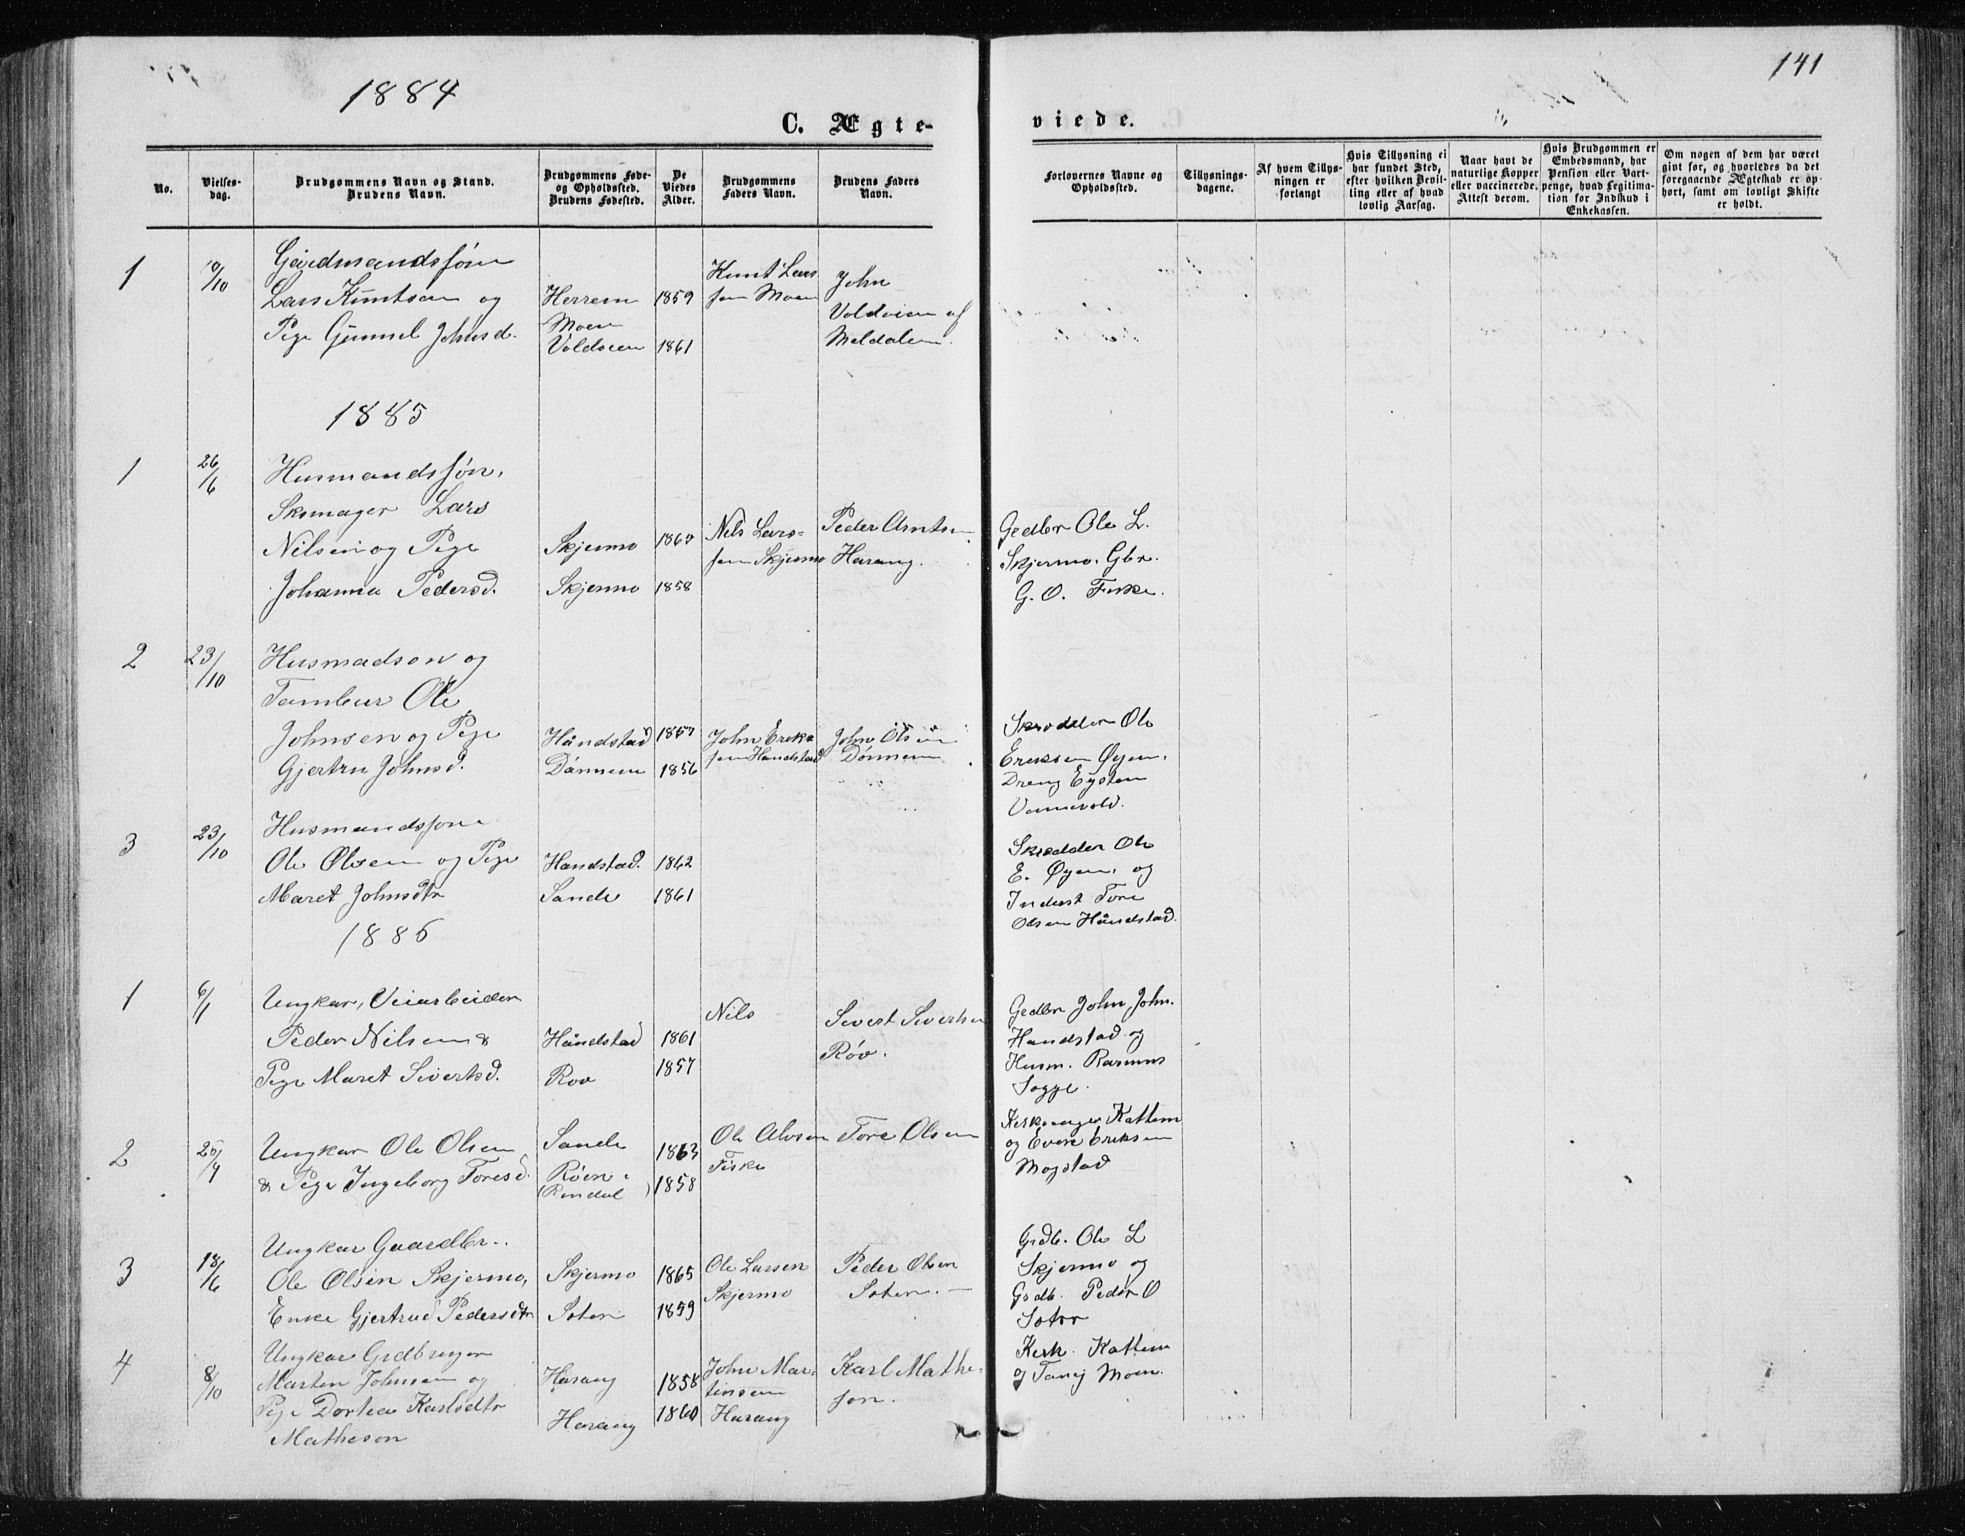 141
1884
C. Ægte-
viede.
No.
Vielses-
dag.
Brudgommens Navn og Stand.
Brudens Navn.
Brudgommens Føde-
og Opholdssted.
Brudens Fødested.
De
Viedes
Alder.
Brudgommens
Faders Navn.
Brudens Faders
Navn.
Forlovernes Navne og
Opholdssted.
Tillysnings-
dagene.
Af hvem Tillys-
ningen er
forlangt
Hvis Tillysning ei
har fundet Sted,
efter hvilken Bevil-
ling eller af hvad
lovlig Aarsag.
Naar havt de
naturlige Kopper
eller vaccinerede.
Attest derom.
Hvis Brudgommen er
Embedsmand, har
Pension eller Vart-
penge, hvad Legitima-
tion for Indskud i
Enkekassen.
Om nogen af dem har været
gift før, og hvorledes da det
foregaaende Ægteskab er op-
hørt, samt om lovligt Skifte
er holdt.
1
10/10
Gårdmandsføn
Lars Knutsen og
Pige Gunnel Johnsd.
Herrem
Moen
Voldvien
1859
1861
Knut Lars
sen Moen
John
Voldvien af
Meldalen.
1885
1
26/6
Husmandsføn,
Skomager Lars
Nilsen og Pige
Johanna Pedersd.
Skjermo
Skjermo
1860
1858
Nils Lars-
sen Skjermo
Peder Arntsen
Harang.
Gedbr Ole L.
Skjermo. Gbr.
G. O. Fiske.
2
23/10
Husmadsøn og
Tambur Ole
Johnsen og Pige
Gjertru Johnsd.
Håndstad
Dønnem
1857
1856
John Erik-
sen Handstad
John Olsen
Dønnem
Skrædder Ole
Eriksen Øyen,
Dreng Eysten
3
23/10
Husmandsføn
Ole Olsen og Pige
Maret Johnsdtr
Handstad.
Sande
1862
1861
Skrædder Ole
E. Øyen, og
Inderst Tore
Olsen Håndstad.
1886
1
6/1
Ungkar, Veiarbeider
Peder Nilsen &
Pige Maret Sivertsd.
Håndstad
Rov
1861
1857
Nils
Sivert Sivertsen
Røv.
Gedbr John John.
Handstad og
Husm. Rasmus
Sogge.
2
25/4
Ungkar Ole Olsen
& Pige Ingeborg Toresd.
Sande
Røen.
(Rindal)
1863
1858
Ole Alvsen
Fiske
Tore Olsen
Kirkesanger Kattem
og Even Eriksen
Mogstad
3
18/6
Ungkar Gaardbr..
Ole Olsen Skjermo,
Enke Gjertrud Pedersdtr
Skjermo
Soten
1865
1859
Ole Larsen
Skjermo
Peder Olsen
Soten. —
Grdb. Ole L
Skjermo og
Grdb. Peder O
Soter
4
8/10
Ungkar Grdbruger
Marten Johnsen og
Pige Dortea Karlsdtr
Matheson
Harang
Harang
1858
1860
John Mar-
tinsen
Harang
Karl Mathe-
son.
Kerk. Kattem
og Tarij Moen.